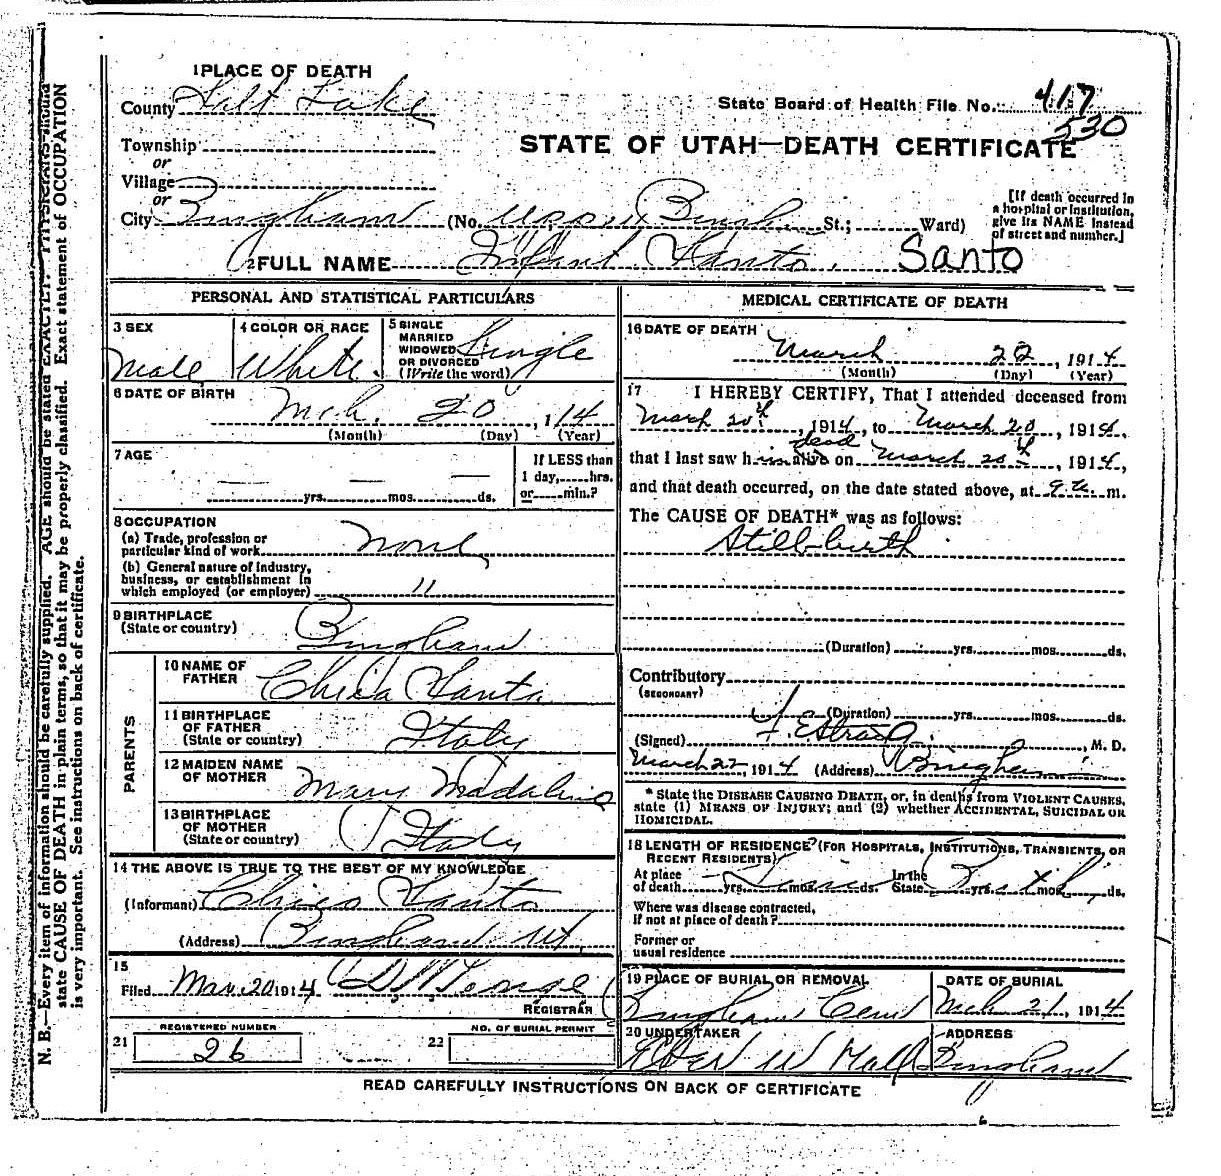 1 PLACE OF DEATH
County Salt Lake
State Board of Health File No. 417
530
Township
or
Village
or
City Bingham (No. Upper Bingh St.; Ward)
STATE OF UTAH—DEATH CERTIFICATE
[If death occurred in
a hospital or institution,
give its NAME instead
of street and number.]
2 FULL NAME Infant Santo. Santo
PERSONAL AND STATISTICAL PARTICULARS
3 SEX
Male
4 COLOR OR RACE
White.
5 SINGLE
MARRIED
WIDOWED
OR DIVORCED
(Write the word)
Single
6 DATE OF BIRTH
Mch. 20, 14
(Month) (Day) (Year)
7 AGE
— — —
yrs. mos. ds.
If LESS than
1 day, hrs.
or min.?
8 OCCUPATION
(a) Trade, profession or
particular kind of work None
(b) General nature of industry,
business, or establishment in
which employed (or employer) "
9 BIRTHPLACE
(State or country) Bingham
PARENTS
10 NAME OF
FATHER Chico Santo
11 BIRTHPLACE
OF FATHER
(State or country) Italy
12 MAIDEN NAME
OF MOTHER Mary Madaline
13 BIRTHPLACE
OF MOTHER
(State or country) Italy
14 THE ABOVE IS TRUE TO THE BEST OF MY KNOWLEDGE
(Informant) Chico Santo
(Address) Bingham Ut.
15
Filed Mar. 20 1914
REGISTRAR
21 REGISTERED NUMBER
26
22 NO. OF BURIAL PERMIT
MEDICAL CERTIFICATE OF DEATH
16 DATE OF DEATH
March 22, 1914
(Month) (Day) (Year)
17 I HEREBY CERTIFY, That I attended deceased from
March 20th, 1914, to March 20, 1914,
dead
that I last saw him alive on March 20th, 1914,
and that death occurred, on the date stated above, at 9 a. m.
The CAUSE OF DEATH* was as follows:
Stillbirth
(Duration) yrs. mos. ds.
Contributory
(SECONDARY)
(Duration) yrs. mos. ds.
(Signed) , M. D.
March 22, 1914 (Address) Bingham
* State the DISEASE CAUSING DEATH, or, in deaths from VIOLENT CAUSES,
state (1) MEANS OF INJURY; and (2) whether ACCIDENTAL, SUICIDAL OR
HOMICIDAL.
18 LENGTH OF RESIDENCE (FOR HOSPITALS, INSTITUTIONS, TRANSIENTS, OR
RECENT RESIDENTS)
At place
of death yrs. mos. ds. In the
State yrs. mos. ds.
Where was disease contracted,
If not at place of death?
Former or
usual residence
19 PLACE OF BURIAL OR REMOVAL
Bingham Cem
DATE OF BURIAL
Mch 21, 1914
20 UNDERTAKER
Eber W Hall
ADDRESS
Bingham
READ CAREFULLY INSTRUCTIONS ON BACK OF CERTIFICATE
N. B.—Every item of information should be carefully supplied. AGE should be stated EXACTLY. PHYSICIANS should
state CAUSE OF DEATH in plain terms, so that it may be properly classified. Exact statement of OCCUPATION
is very important. See instructions on back of certificate.